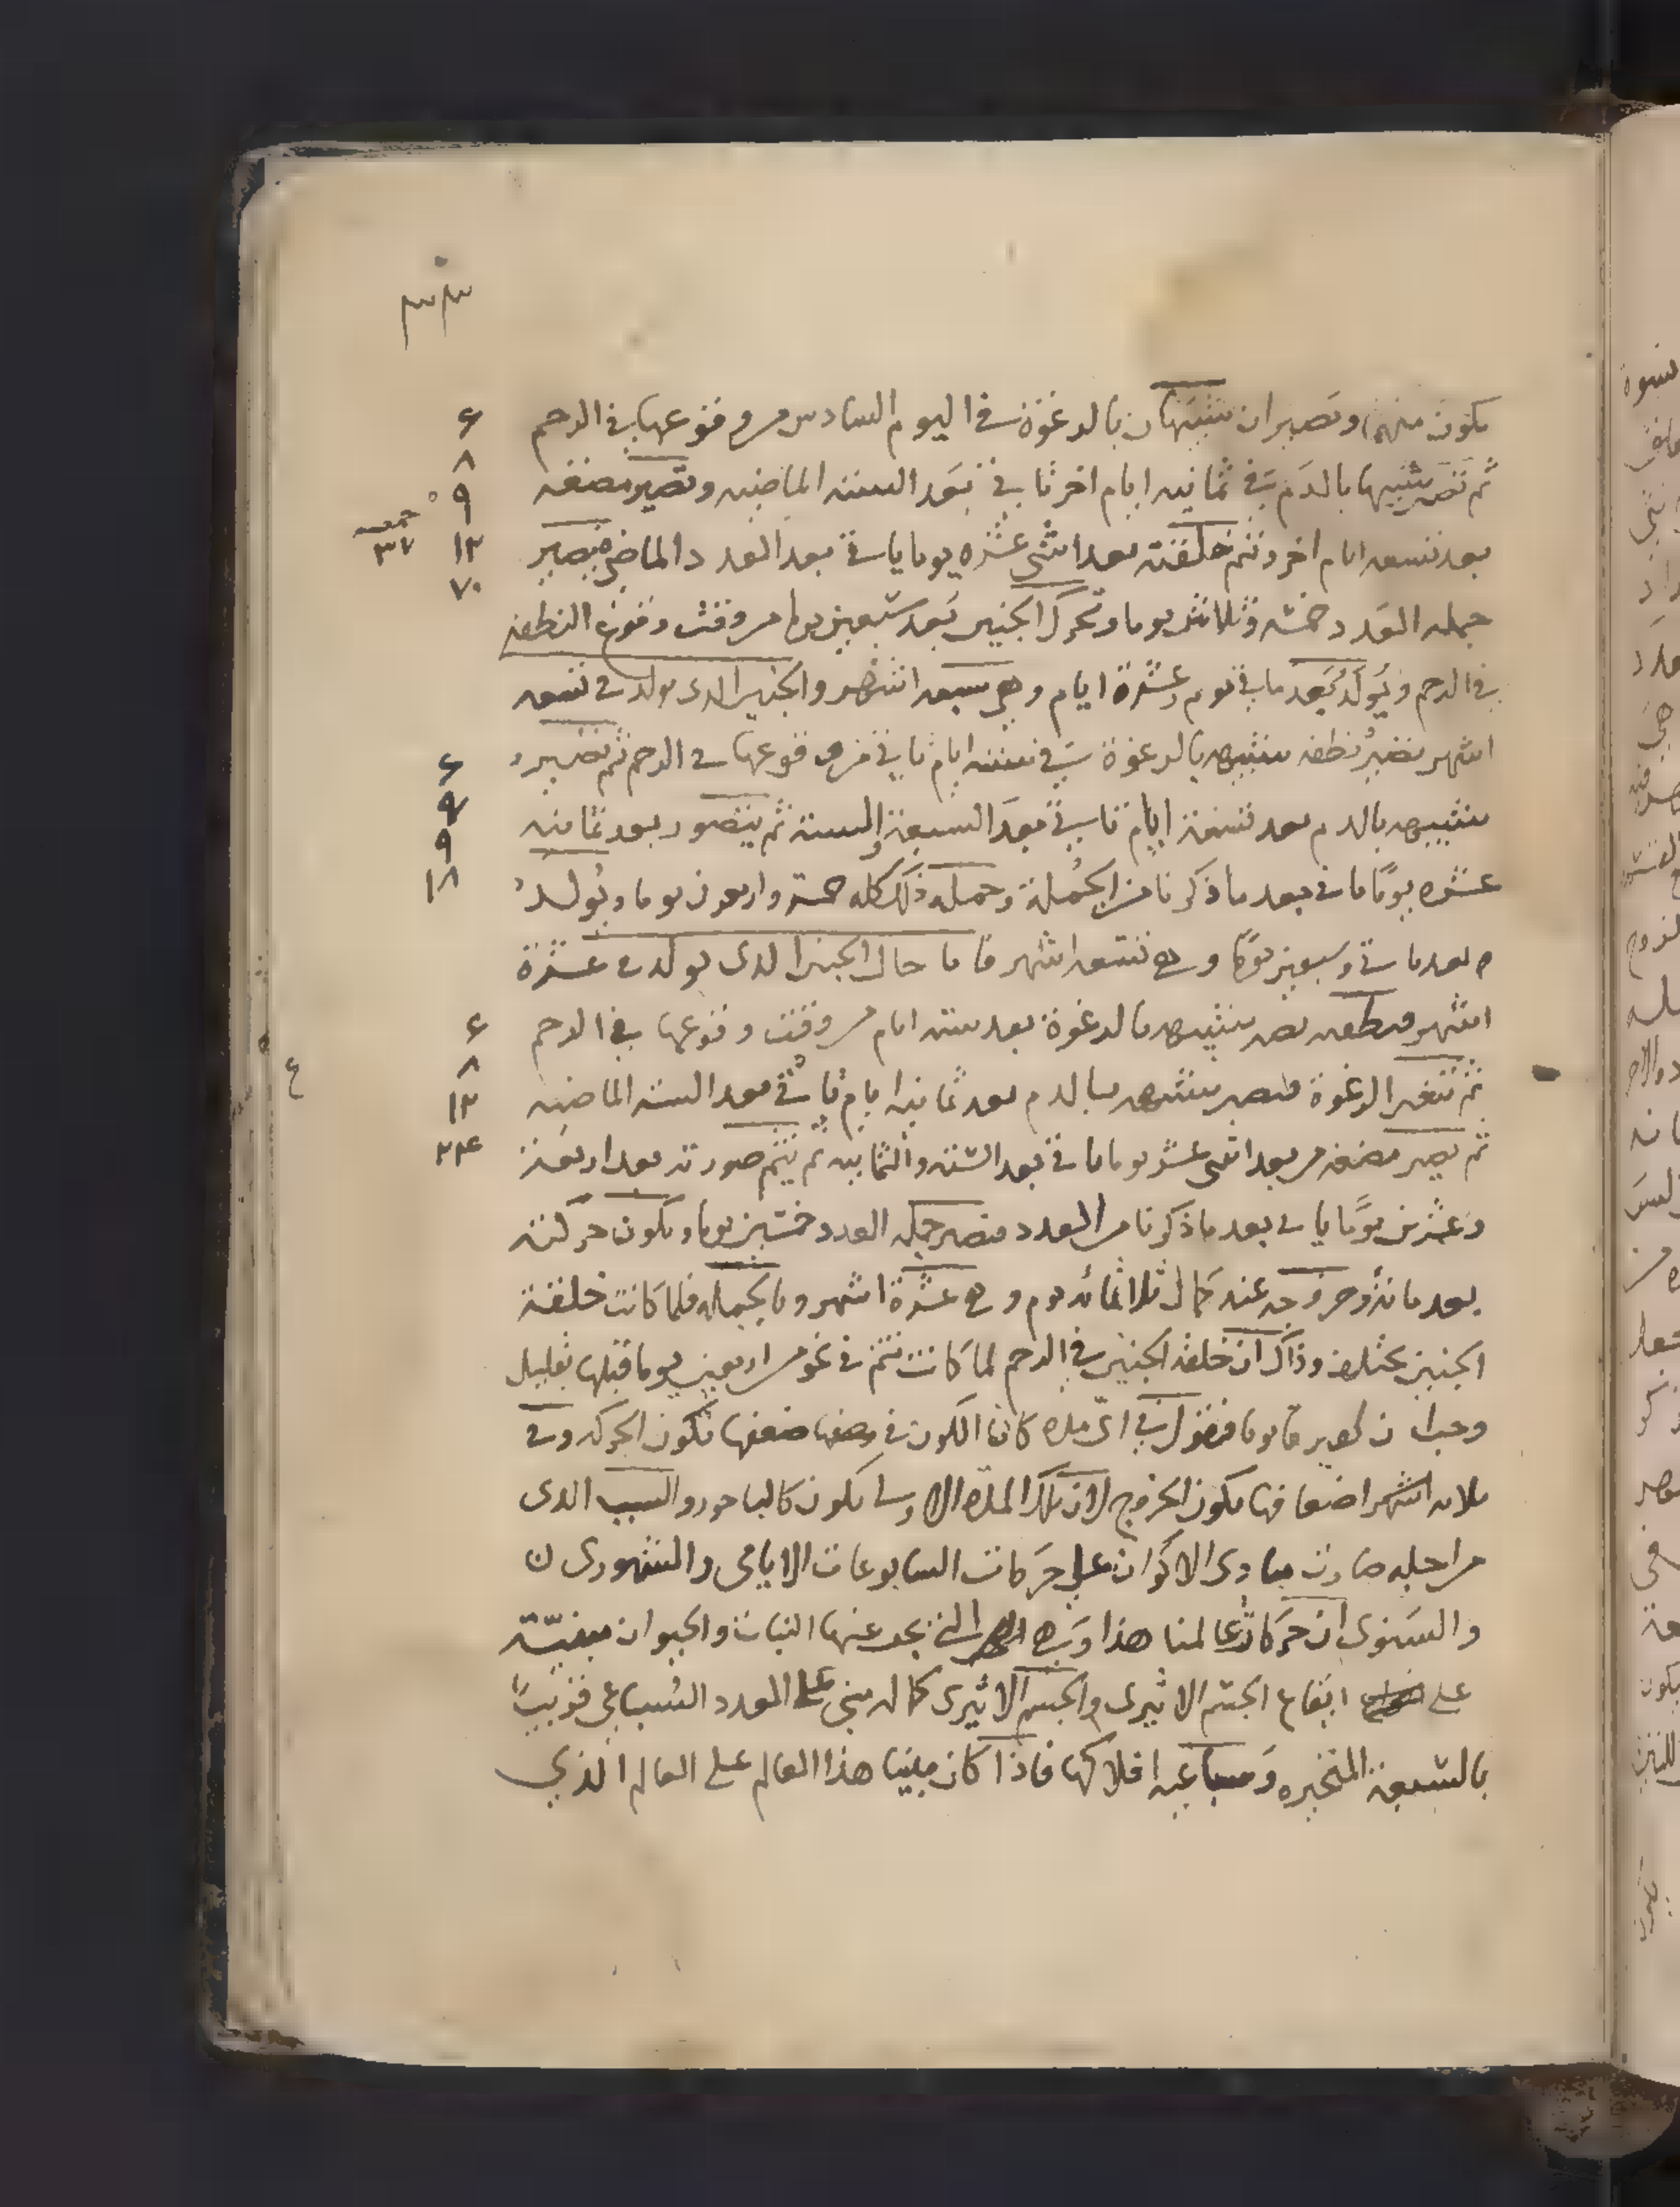 ٣٣
يكون منهما وتصيران شبيهتان بالرغوة في اليوم السادس من وقوعها في الرحم ٦
ثم تصير شبيهها بالدم في ثمانية ايام اخر تاتي بعد الستة الماضيه وتصير مضغه ٨
بعد تسعه ايام اخر وتتم خلقته بعد اثنى عشره يوما ياتي بعد العدد الماضي فيصير ٩ ١٢
جمله العدد خمسه وثلاثين يوما وتحرك الجنين بعد سبعين يوما من وقت وقوع النطفه ٧٠
في الرحم ويولد بعد مايتي يوم وعشرة ايام وهي سبعه اشهر والجنين الدى يولد في تسعه
اشهر تصير نطفه شبيهه بالرغوة في سته ايام تاتي من وقوعها في الرحم ثم تصير ٦
شبيهه بالدم بعد تسعة ايام تاتي بعد السبعة والستة ثم يتصور بعد ثمانيه ٩ ٩
عشره يومًا ياتي بعد ما ذكرنا من الجملة وجمله ذلك كله خمسة واربعون يوما ويولد ١٨
بعد مايتي وسبعين يومًا وهي تسعه اشهر فاما حال الجنين الدى يولد في عشرة
اشهر فنطفه تصير شبيهه بالرغوة بعد سته ايام من وقت وقوعها في الرحم ٦
ثم تتغير الرغوة فتصير شبيهه بالدم بعد ثمانيه ايام تاتي بعد السته الماضيه ٨ ١٢
ثم يصير مضغه من بعد اثنى عشر يوما ياتي بعد الستة والثمانيه ثم تتم صورته بعد اربعة ٢٤
وعشرين يومًا ياتي بعد ما ذكرنا من العدد فتصير جمله العدد خمسين يوما ويكون حركته
بعد مائة وخروجه عند كمال ثلاثمائه يوم وهي عشرة اشهر وبالجمله فلما كانت خلقة
الجنين تختلف وذاك ان خلقه الجنين في الرحم لما كانت تتم في نحو من اربعين يوما قبلها بقليل
ان فنقول في اى مده كان الكون في ضعفها تكون الحركه وفي
ثلاثه اضعافها يكون الخروج لان تلك المده الاولى يكون كالباحور والسبب الدى
من اجله صارت مبادى الاكوان على حركات السابوعات الايامى والشهورى
والسنوى ان حركات عالمنا هذا وهي التى عنها النبات والحيوان مبنيّة
على ايقاع الجسم الاثيرى والجسم الاثيرى كماله مبنى على العدد السباعى
بالسبعة المتحيره وسباعيه افلاكها فاذا كان مبنيا هذا العالم على العالم الذي